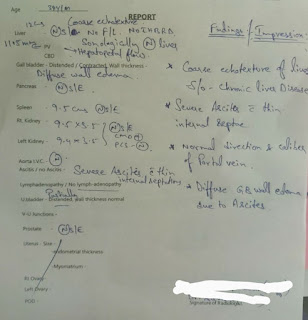 Age
REPORT
Coarse echotexture
Liver N S
No F/L. No IHBRD
Findings / Impression:
Sonologically N liver
PV
CBD
Hepatopetal flow
Gall bladder - Distended / Contracted, Wall thickness -
Diffuse wall edema
* Coarse echotexture of liver
S/o - Chronic liver Disease
Pancreas : N S/E
Spleen : 9.5 cm N S/E
* Severe Ascites c̄ thin
internal septae
Rt. Kidney : 9.5 x 3.5
N S/E
CMD
PCS - N
Left Kidney : 9.4 x 3.5
* Normal direction & calibre
of Portal vein.
Aorta I.V.C. N
Ascitis / no Ascitis : Severe Ascites c̄ thin
internal septations
Lymphadenopathy / No lymph-adenopathy
* Diffuse GB wall edema
due to Ascites
U.bladder - Distended, wall thickness normal
V-U Junctions :
Prostate : N S/E
Uterus : Size -
-Endometrial thickness-
- Myometrium -
Rt. Ovary :
Left Ovary :
POD :
Signature of Radiologist